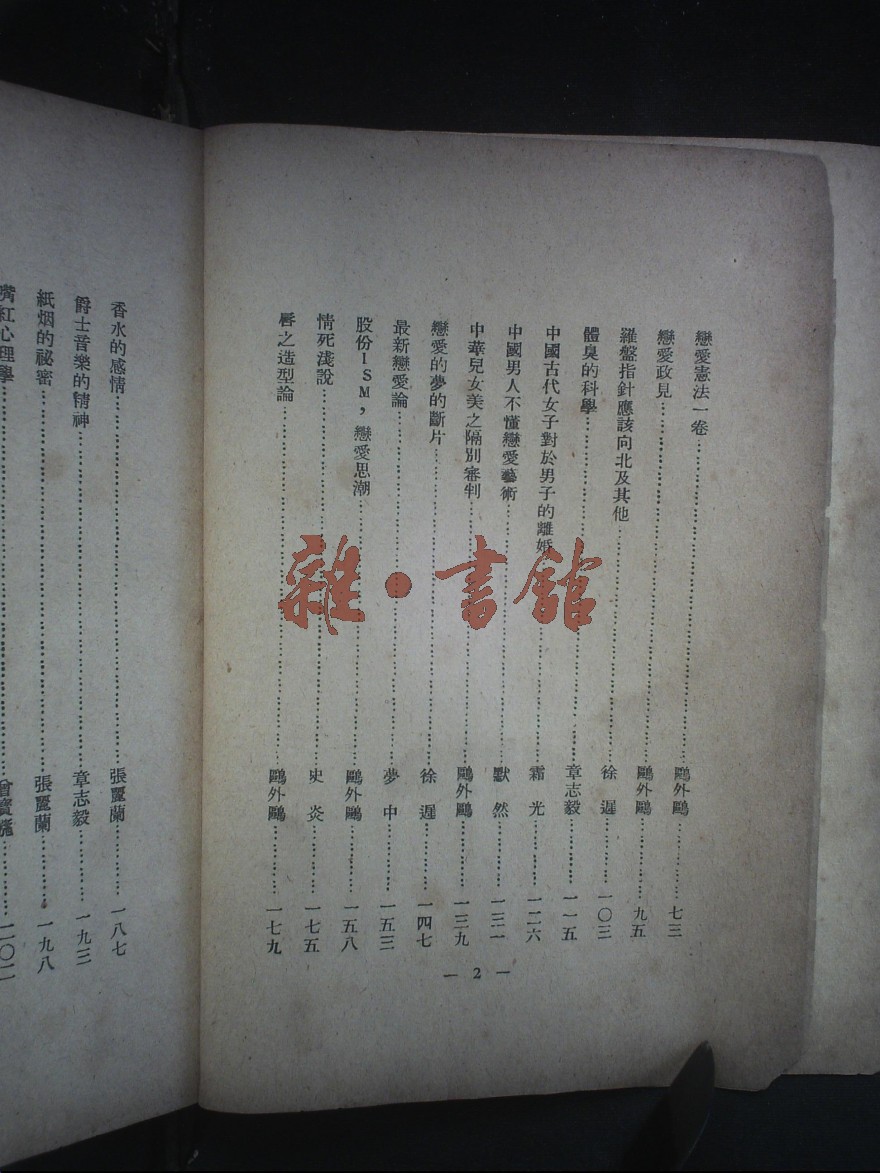 戀愛憲法一卷……鷗外鷗……七三
戀愛政見……鷗外鷗……九五
羅盤指針應該向北及其他……徐遲……一〇三
體臭的科學……章志毅……一一五
中國古代女子對於男子的離婚……霜光……一二六
中國男人不懂戀愛藝術……默然……一三一
中華兒女美之隔別審判……鷗外鷗……一三九
戀愛的夢的斷片……徐遲……一四七
最新戀愛論……夢中……一五三
股份ISM，戀愛思潮……鷗外鷗……一五八
情死淺說……史炎……一七五
唇之造型論……鷗外鷗……一七九
— 2 —
香水的感情……張麗蘭……一八七
爵士音樂的精神……章志毅……一九三
紙烟的祕密……張麗蘭……一九八
嘴紅心理學……二〇二
雜·書館